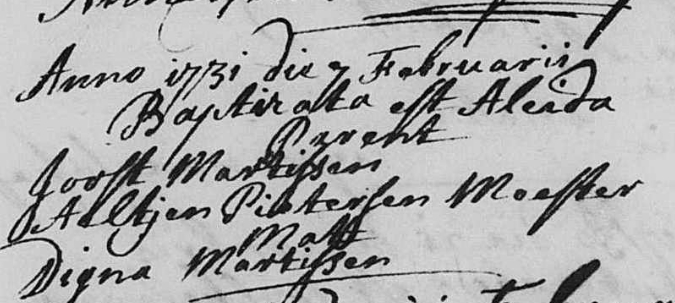 Anno 1731 die 7 Februarii
Baptizata est Aleida
Parent
Joost Martissen
Aeltjen Pietersen Meester
Matt
Digna Martissen